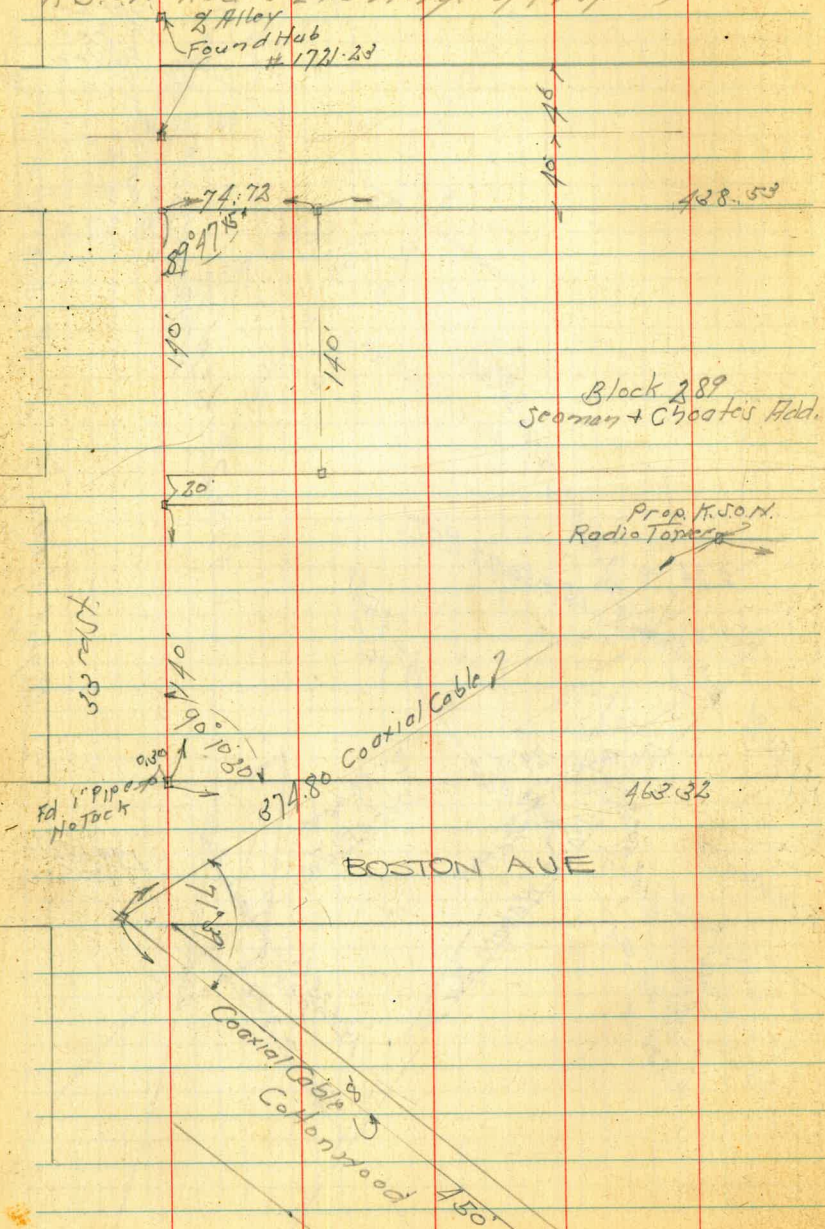 Alley
Found Hub
# 1721-23
40' 40'
74.72
438.53
89°47'45"
140'
140'
Block 289
Seaman + Choate's Add.
20'
Prop. K.S.O.N.
Radio Tower
33rd St.
140'
90°10'30"
Coaxial Cable
0.30
Fd 1" Pipe
No Tack
374.80
463.32
BOSTON AVE
Coaxial Cable
Cottonwood
450'